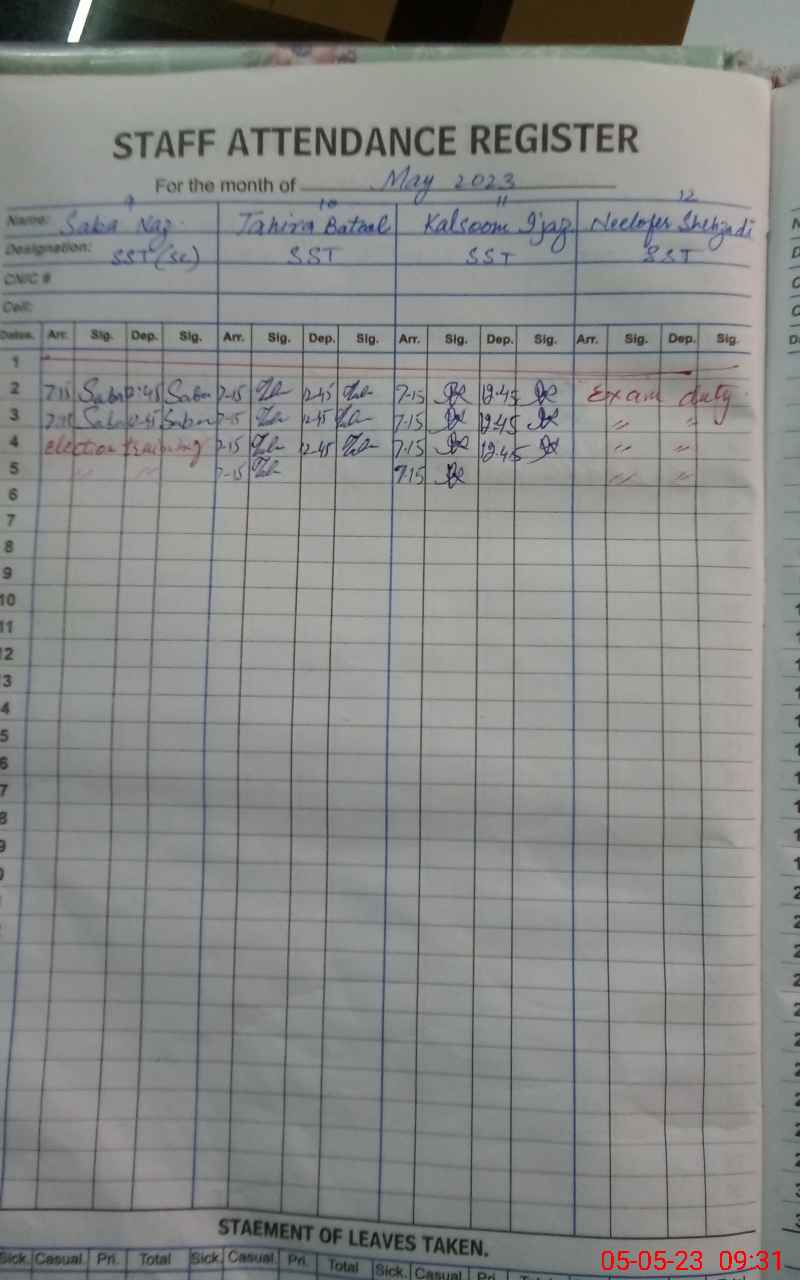 STAFF ATTENDANCE REGISTER
For the month of May 2023
9 10 11 12
Name: Saba Naz Tahira Batool Kalsoom Ijaz Neelofer Shehzadi
Designation: SST (Sc) SST SST SST
CNIC #
Cell:
Dates. Arr. Sig. Dep. Sig. Arr. Sig. Dep. Sig. Arr. Sig. Dep. Sig. Arr. Sig. Dep. Sig.
1
2 7:15 Saba 12:45 Saba 7-15 12-45 7-15 12-45 Exam duty
3 7:15 Saba 12:45 Saba 7-15 12-45 7-15 12-45 " "
4 election training 7-15 12-45 7-15 12-45 " "
5 " " 7-15 7-15 " "
6
7
8
9
10
11
12
3
4
5
6
7
8
9
STAEMENT OF LEAVES TAKEN.
Sick. Casual Pri. Total Sick. Casual Pri. Total Sick. Casual Pri.
05-05-23 09:31